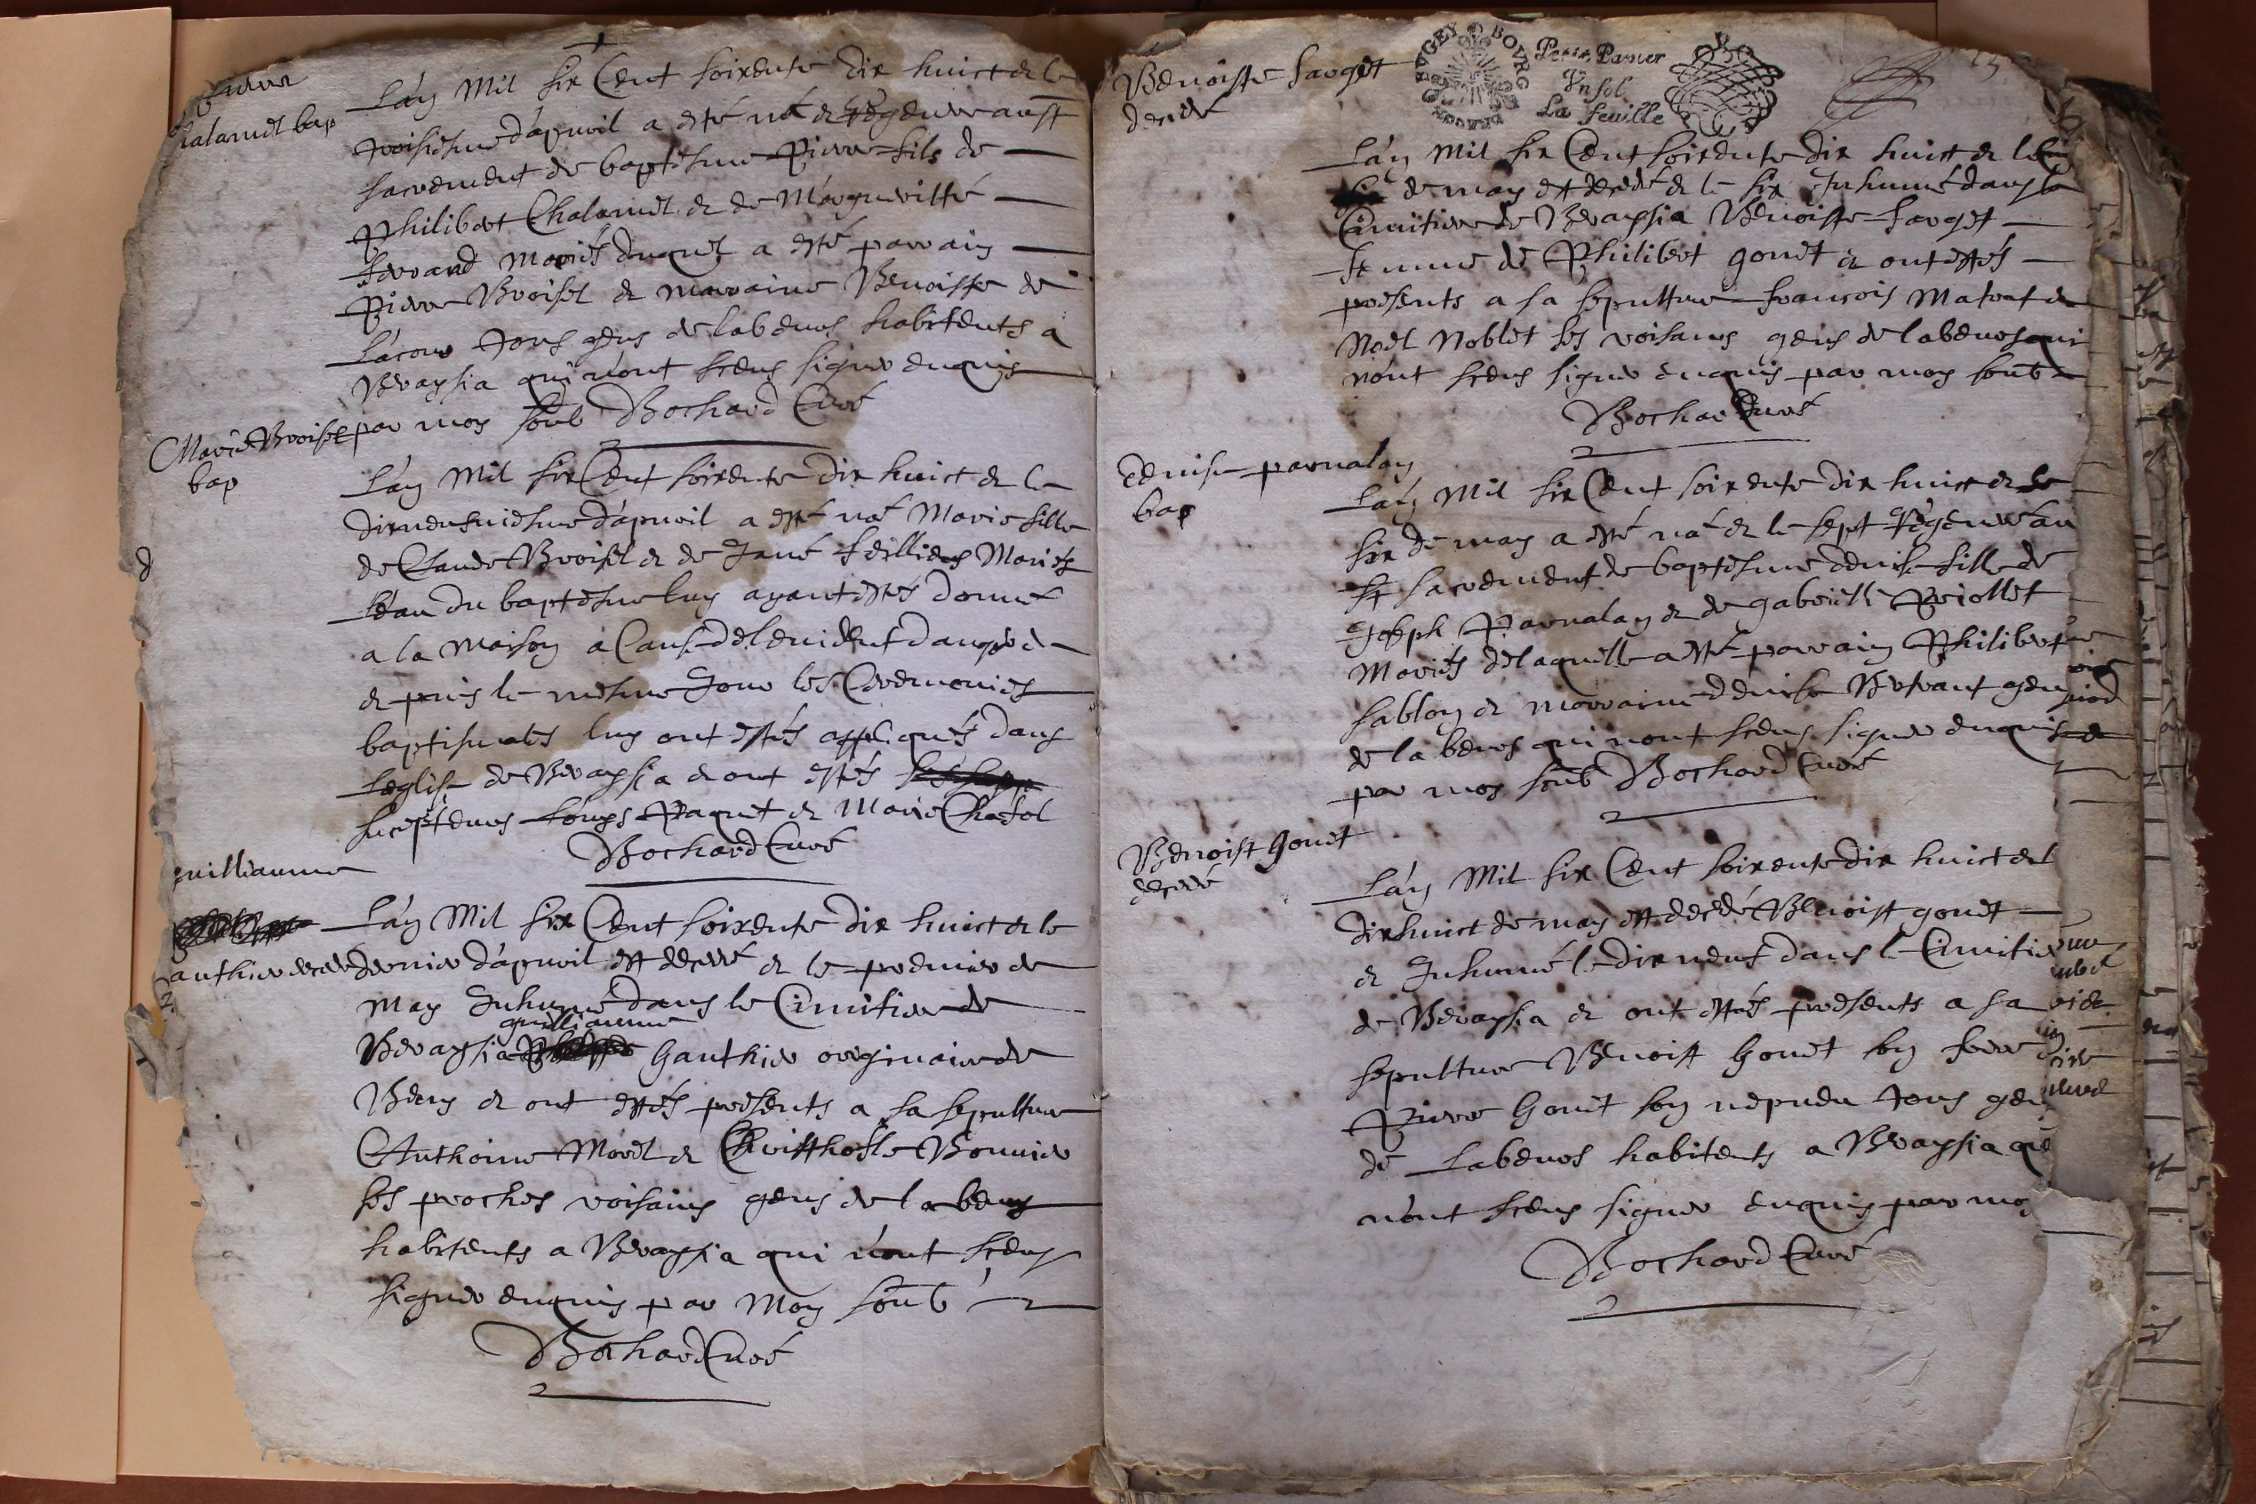 Pierre
Chalamel bap
L'an Mil six Cent soixente dix huict et le
troisiesme d'apvril a esté né et régénéré au St
sacrement de baptesme Pierre fils de
Philibert Chalamel et de Margueritte
ferrand Mariés duquel a esté parrain
Pierre Broisel et marraine Benoiste de
tous gens de labeurs habitents a
Braysia qui n'ont sceus signer enquis
par moy soub Bochard Curé
Marie Broisel
bap
L'an Mil six Cent soixente dix huict et le
dixneufuiesme d'apvril a esté né Marie fille
de Claude Broisel et de Jané Mariés
l'eau du baptesme luy ayant estés donné
a la Maison a Cause de levident danger
et puis le mesme Jour les Ceremonies
baptismales luy ont estés appliqués dans
leglise de Braysia et ont estés
suscepteurs Louys Paquet et Marie
Bochard Curé
guilliaume
gauthier decedé
L'an Mil six Cent soixente dix huict et le
dernier d'apvril est decedé et le premier de
May Inhumé dans le Cimitiere de
guilliaume
Braysia Gauthier originaire de
Beny et ont estés presents a sa sepulture
Anthoine Morel et Christhofle Bonnier
ses proches voisains gens de labeurs
habitents a Braysia qui n'ont sceus
signer enquis par Moy soub
Bochard Curé
BVGEY BOVRG
Petit Papier
Vn sol
La feuille
Benoiste farget
decedé
L'an Mil six Cent soixente dix huict et le
de may est decedé et le six Inhumé dans le
Cimitiere de Braysia Benoiste farget
femme de Philibert gonet et ont estés
presents a sa sepulture francois et
Noel Noblet ses voisains gens de labeurs qui
n'ont sceus signer enquis par moy soub
Bochard Curé
Denise parralay
bap
L'an Mil six Cent soixente dix huict et le
six de may a esté né et le sept régénéré au
St sacrement de baptesme denise fille de
Joseph Parralay et de gabrielle
Mariés de laquelle a esté parrain Philibert
sablon et marraine denise gens
de labeurs qui nont sceus signer enquis
par moy soub Bochard Curé
Benoist Gonet
decedé
L'an Mil six Cent soixente dix huict et l
dixhuict de may est decedé Benoist gonet
et Inhumé le dixneuf dans le Cimitiere
de Braysia et ont estés presents a sa
sepulture Benoist Gonet son frere
Pierre Gonet son nepueu tous gens
de Labeurs habitents a Braysia qui
n'ont sceus signer enquis par moy
Bochard Curé